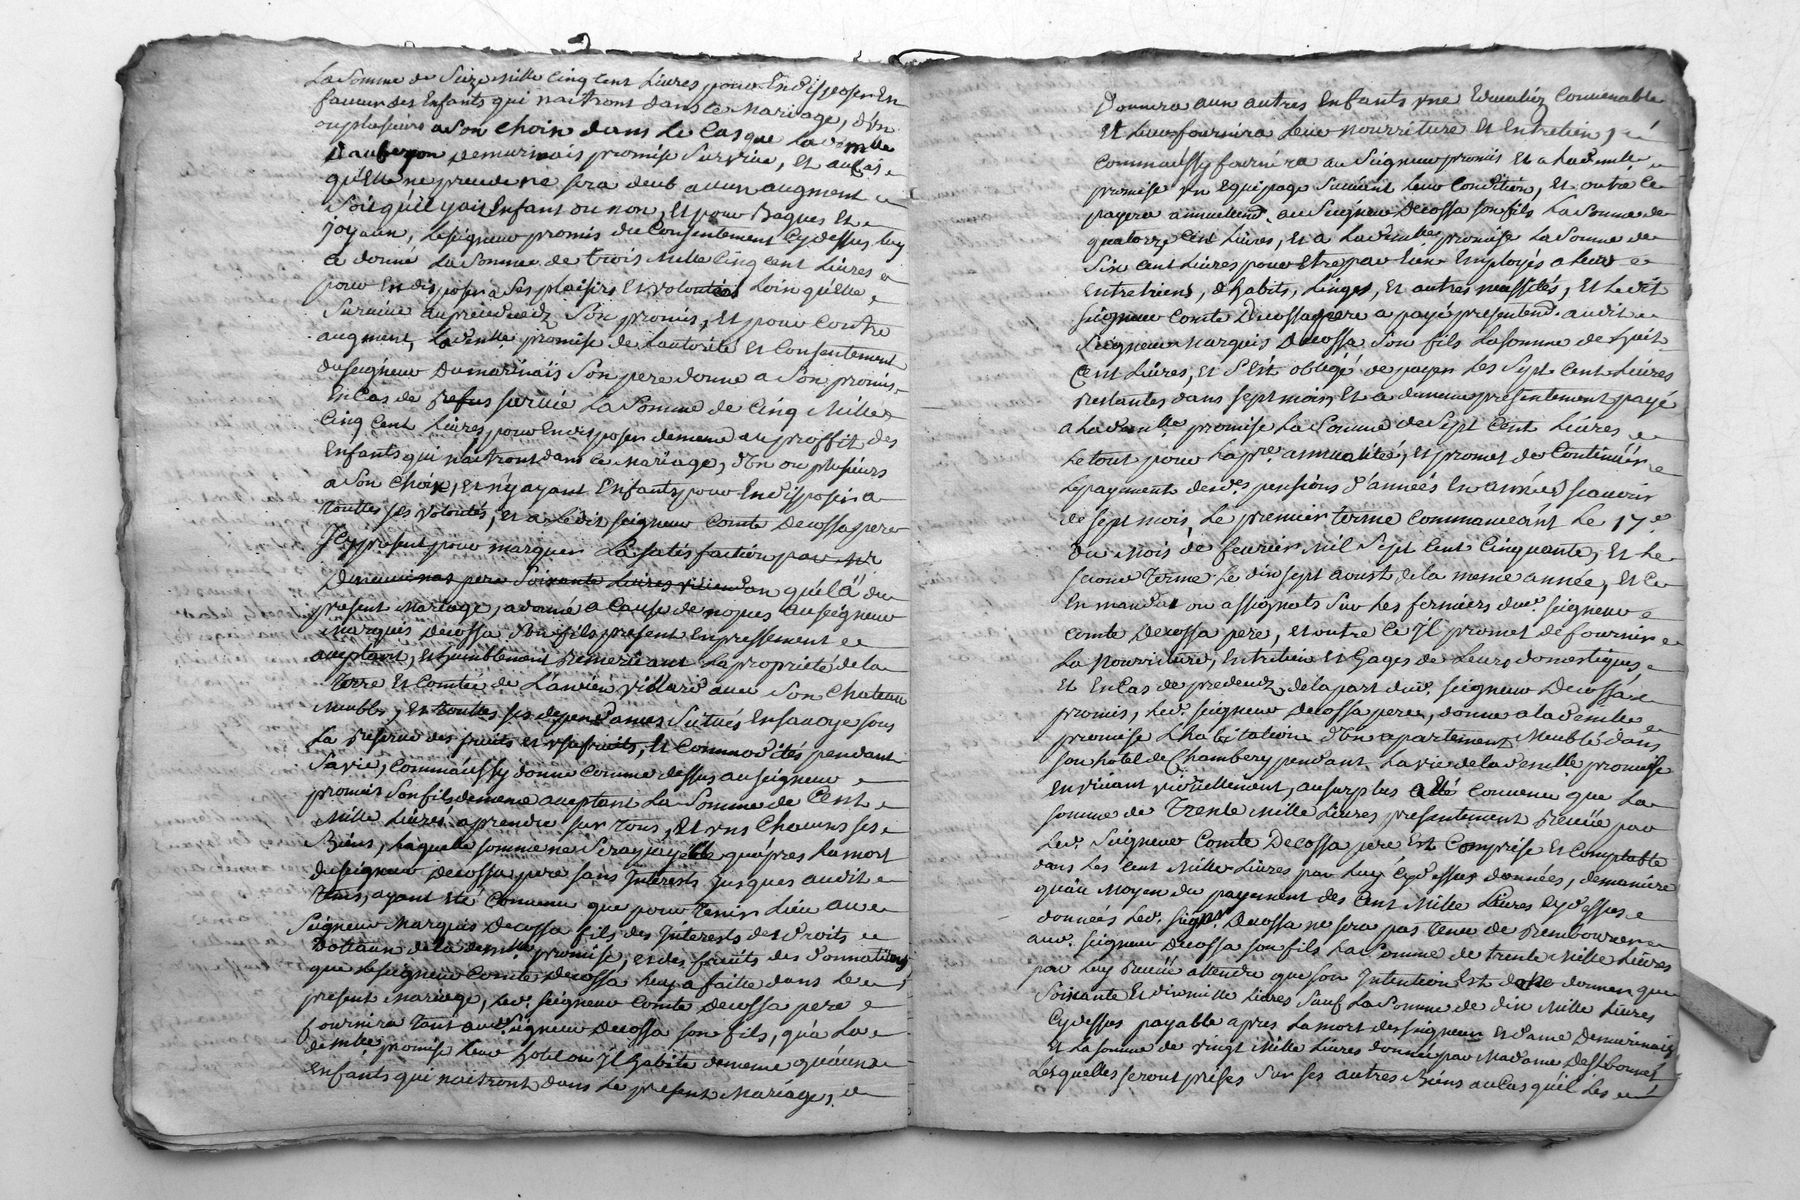 La Somme de Seize Mille cinq Cent Livres pour En disposer En
faveur des Enfants qui naitront dans ce Mariage, d'un
ou plusieurs a Son choix dans Le Cas que La demlle
Demurinais promise Survive, et au Cas
qu'Elle ne prende ne sera deub aucun augment
Soit qu'il y ait Enfant ou non, Et pour Bagues Et
joyaux, Le seigneur promis du Consentement Cydessus luy
a donné La Somme de trois Mille Cinq cent Livres
pour En disposer a Ses plaisirs Et volontés Loin qu'elle
Survive au prédécedz Son promis, Et pour Contre
augment, La demlle promise de Lautorité et Consentement
du seigneur Dumarinais Son pere donne a Son promis
En Cas de Refus Survie La Somme de Cinq Mille
Cinq Cent Livres, pour En disposer demême au proffit des
Enfants qui naitront dans ce mariage, d'Un ou plusieurs
a Son Choix, et n'y ayant Enfants pour En disposer a
touttes ses volontés, et a Ledit seigneur Comte Decossa pere
Jcy present pour marquer La Satisfaction
qu'il a du
present Mariage, a donné a Cause de nopces au seigneur
Marquis Decossa Son fils present Expressement
aceptant, et humblement Remerciant La propriété de la
Terre Et Comté de L'anvieu villard avec Son Chateau
Meublé, et touttes ses dependances Situés En savoye sous
La Reserve des fruits et usufruits, Et Commodités pendant
Sa vie, Comm'aussy donne Comme dessus au seigneur
promis Son fils demême aceptant La Somme de Cent
Mille Livres a prendre sur tous, Et uns Chacuns ses
Biens, Laquelle somme ne Sera payable qu'apres La mort
du seigneur Decossa pere sans Interests jusques audit
tems, ayant eté Convenu que pour tenir Lieu au
Seigneur Marquis Decossa fils des Interests des Droits
Dotaux de la demlle promise, et des fruits des Donnations
que Le seigneur Comte Decossa luy a faitte dans Le
present Mariage, Led. seigneur Comte Decossa pere
fournira tant aud. Seigneur Decossa son fils, qu'a La
demlle promise Leur hotel ou Jl habite demême qu'aux
Enfants qui naitront dans Le present Mariage,
Donnera aux autres Enfants une Education Convenable
Et Leur fournira Leur nourriture Et Entretien,
Comm'aussy fournira au Seigneur promis Et a La demlle
promise un Equipage Suivant Leur Condition, Et outre Ce
payera annuellemt. au Seigneur Decossa son fils La Somme de
quatorze Cent Livres, Et a La demlle promise La Somme de
Six Cent Livres pour Etre par Eux Employés a Leur
Entretiens, d'habits, Linges, Et autres necessités, Et Ledit
seigneur Comte Decossa pere a payé presentemt. audit
Seigneur Marquis Decossa Son fils La Somme de huit
Cent Livres, Et S'Est obligé de payer Les Sept Cent Livres
Restantes dans sept mois, Et a demême presentement payé
a La demlle promise La Somme de Sept Cent Livres
Le tout pour La pre. annualité, Et promet de Continuer
Le payement desd. pensions d'années En années scavoir
de sept mois, Le premier terme Commancant Le 17e
du Mois de fevrier Mil Sept Cent Cinquante, Et Le
second terme Le dix sept aoust de la meme année, Et Ce
En mandat ou assignats Sur Les fermiers dud. seigneur
Comte Decossa pere, Et outre Ce Jl promet de fournir
La Nourriture, Entretien Et Gages de Leurs domestiques,
Et En Cas de predecedz de la part dud. seigneur Decossa
promis, Led. seigneur Decossa pere, donne a La demlle
promise L'habitation d'un apartement Meublé dans
son hotel de Chambery pendant La vie de la demlle promise
En vivant viduellement, au surplus a Eté Convenu que La
somme de Trente Mille Livres presentement Receüe par
Led. Seigneur Comte Decossa pere Est Comprise Et Comptable
dans Les Cent Mille Livres par Luy Cydessus données, demaniere
qu'au Moyen du payement des Cent Mille Livres Cydessus
données Led. seigneur Decossa ne sera pas Tenu de Rembourcer
aud. seigneur Decossa son fils La Somme de trente Mille Livres
par Luy Receüe attendu que son Intention Est de ne donner que
Soixante Et dix mille Livres Sauf La Somme de dix Mille Livres
Cydesses payable apres La mort des seigneur et Dame Demurinais
Et La somme de vingt Mille Livres donnée par Madame
Lesquelles seront prises Sur ses autres Biens au Cas qu'il Les